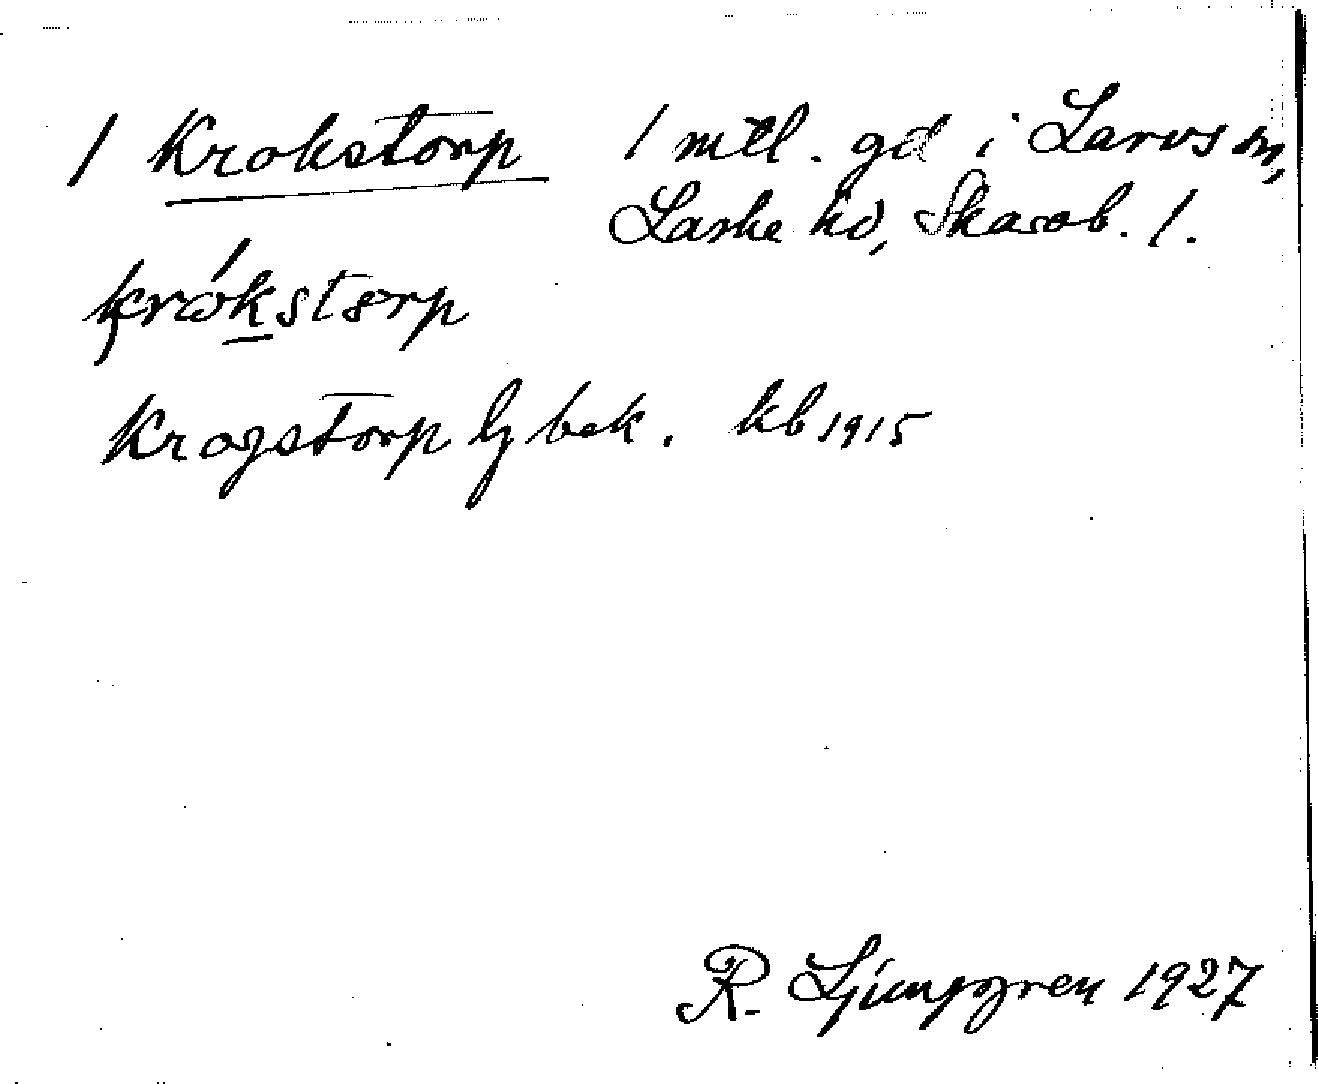 / Krokstorp 1 mtl. gd i Larvs sn,
Laske hd, Skarab. l.
krókstorp
Krogstorp bek. kb 1915
R. Ljunggren 1927